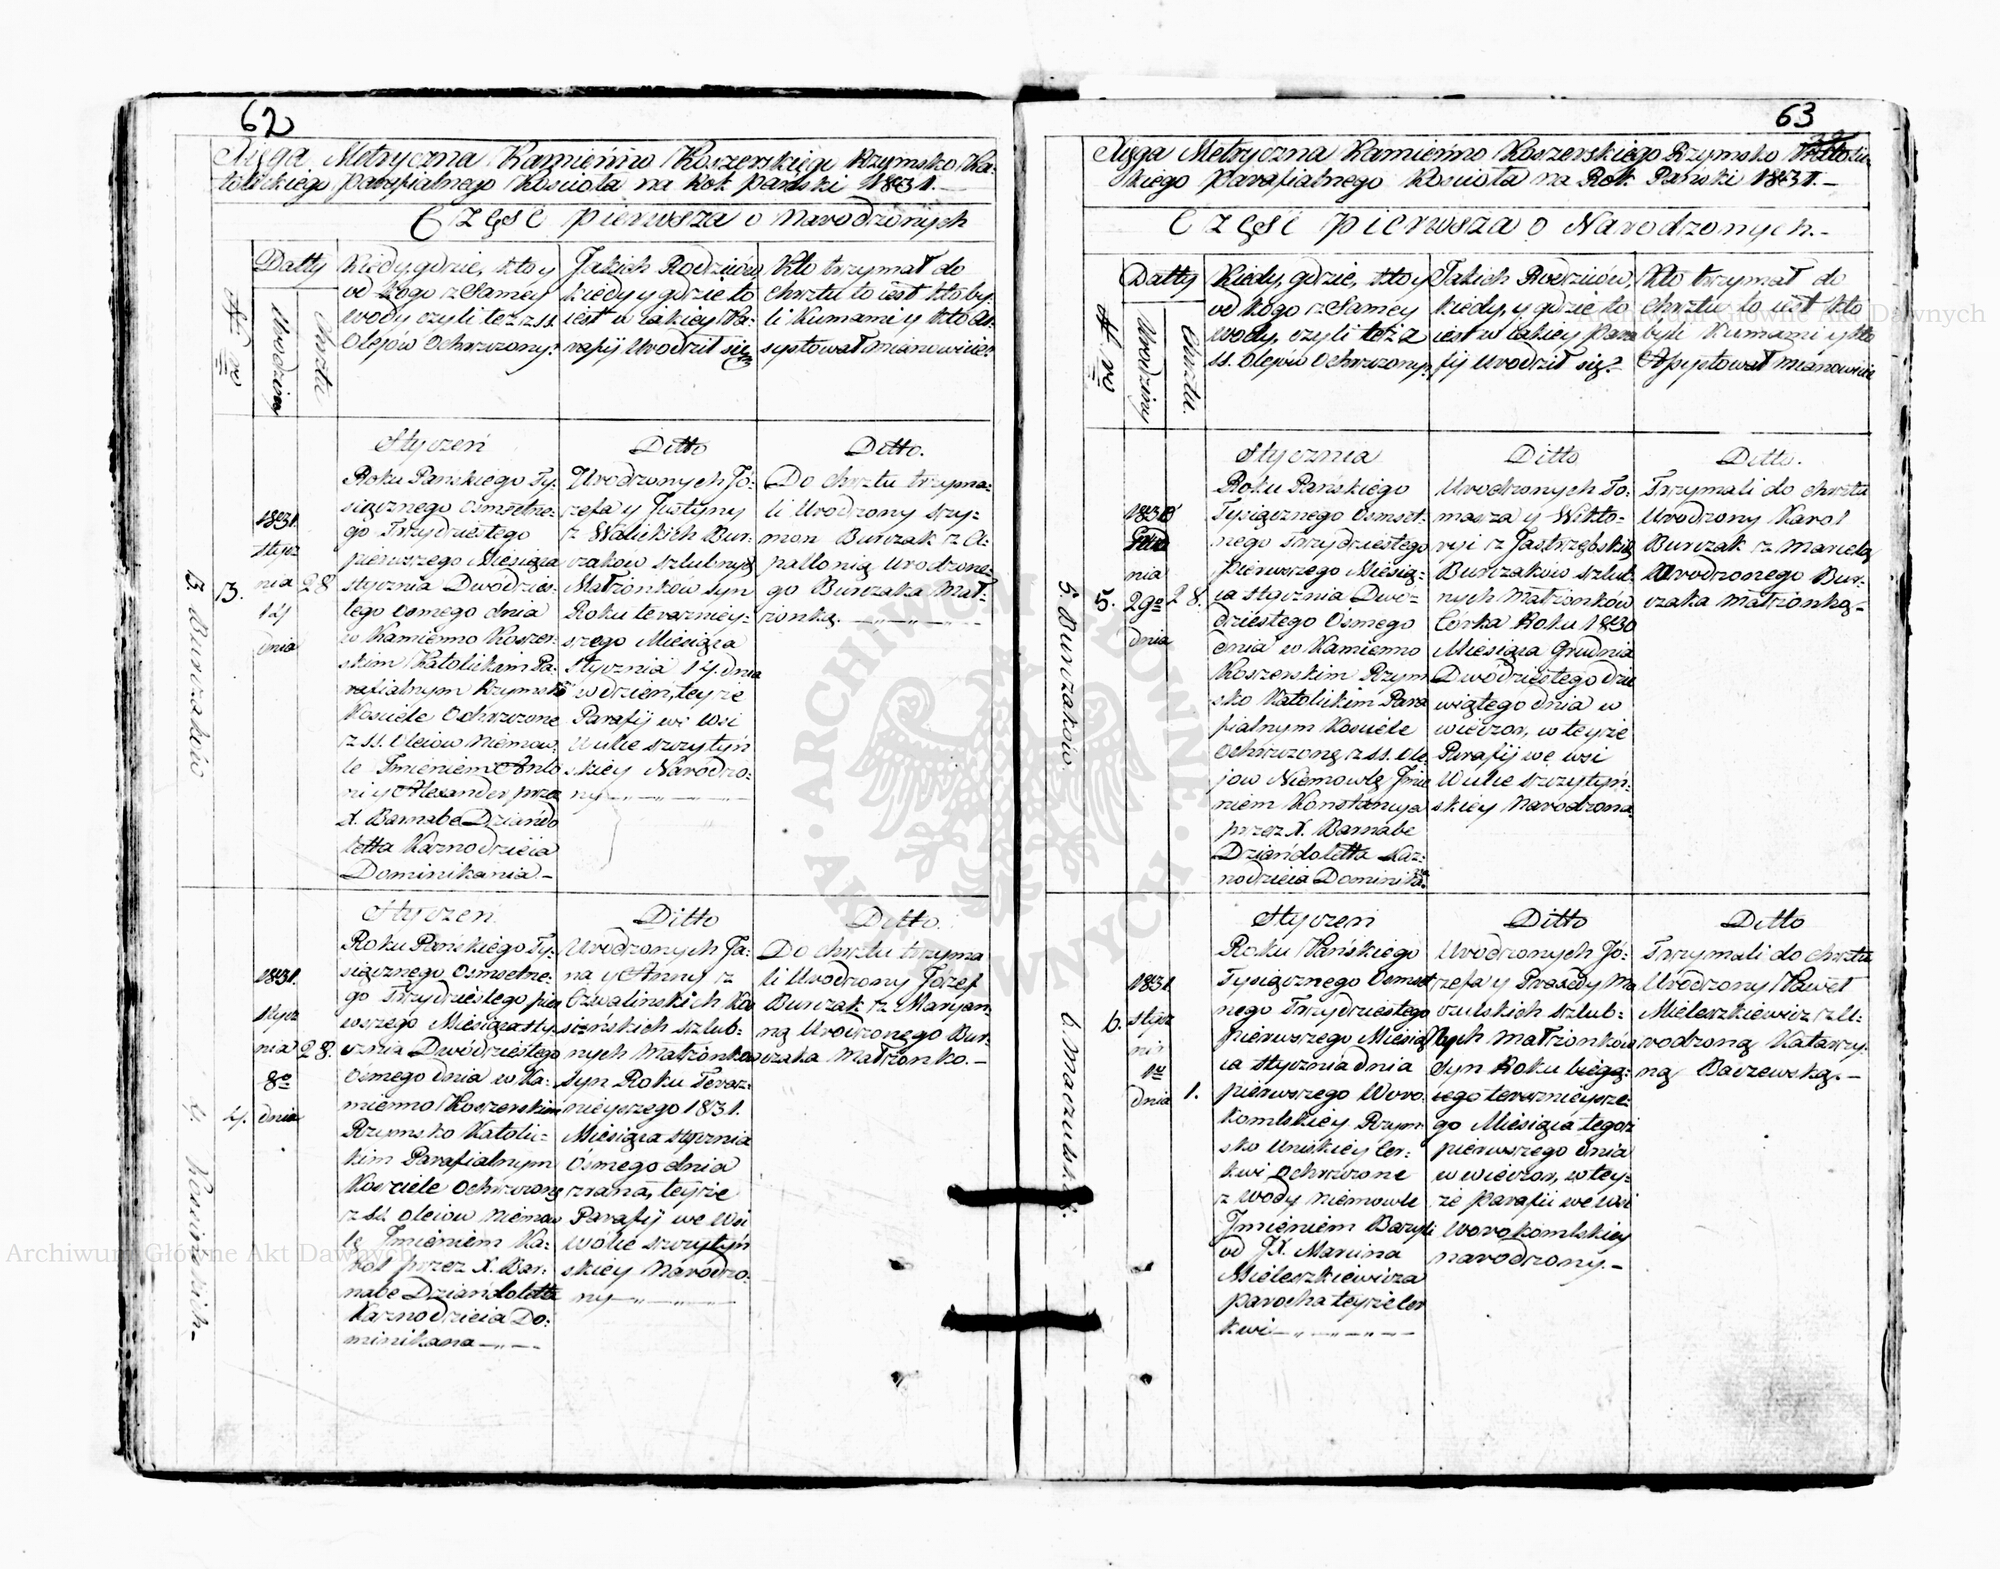 62
Xięga Metryczna Kamienno Koszerskiego Rzymsko Ka-
tolickiego Parafialnego Kościoła na Rok Pański 1831.—
Część pierwsza o Narodzonych
Datty
No
Urodzin
Chrztu
Kiedy, gdzie, kto y
od kogo z Samey
wody czyli też z ss.
Olejow Ochrzczony?
Jakich Rodziców,
kiedy y gdzie to
iest w iakiey Pa-
rafij Urodził się
Kto trzymał do
chrztu to iest kto by-
li Kumami y kto As-
systował mianowicie?
3. Burczaków
3.
1831.
stycz
nia
14
dnia
28
Styczeń
Roku Pańskiego Ty-
siącznego Osmsetne-
go Trzydziestego
pierwszego Miesiąca
stycznia Dwódzies-
tego osmego dnia
w Kamienno Koszer-
skim Katolickim Pa-
rafialnym Rzymsko
Kościele Ochrzczone
z ss. Oleiow Niemow-
le Imieniem Anto
ni y Alexander przez
X. Barnabe Dziando
letta Kaznodzieia
Dominikania.—
Ditto
Urodzonych Jó-
zefa y Justyny
z Walickich Bur-
czaków szlubnych
Małżonków syn
Roku teraznieÿ-
szego Miesiąca
stycznia 14. dnia
w dzień, teyże
Parafij wé wsi
Wulce szczytyń
skiey Narodzo-
ny
Ditto.
Do chrztu trzyma-
li Urodzony Szy-
mon Burczak z A-
pallonią Urodzone-
go Burczaka Mał-
żonką.
4. Kosińskich—
4.
1831.
stycz
nia
8o
dnia
28.
Styczeń
Roku Pańskiego Ty-
siącznego Osmsetne-
go Trzydziestego pier
wszego Miesiąca sty-
cznia Dwódziestego
Osmego dnia w Ka-
mienno Koszerskim
Rzymsko Katolic-
kim Parafialnym
Kościele Ochrzczone
z ss. oleiow Niemow
le Imieniem Ka-
rol przez X. Bar-
nabe Dziandoletta
Kaznodzieia Do-
minikana
Ditto
Urodzonych Ja-
na y Anny z
Czwalinskich Ko
sińskich szlub-
nych Małżonków
Syn Roku Teraz-
nieyszego 1831.
Miesiąca stycznia
Ósmego dnia
zrana, teyże
Parafij we wsi
Wólce szczytyń
skiey Narodzo-
ny
Ditto.
Do chrztu trzyma
li Urodzony Józef
Burczak z Maryan-
ną Urodzonego Bur-
czaka Małżonko.—
63
Xięga Metryczna Kamienno Koszerskiego Rzymsko Katolic-
kiego Parafialnego Kościoła na Rok Pański 1831.—
Część pierwsza o Narodzonych.—
Datty
No
Urodziny
Chrztu.
Kiedy, gdzie, kto y
od kogo z Samey
wody, czyli też z
ss. Olejów Ochrzczony?
Jakich Rodziców,
kiedy, y gdzie to
iest w iakiey Para
fij Urodził się?
Kto trzymał do
chrztu to iest kto
byli Kumami y kto
Assystował mianowicie
5. Burczaków.
5.
1830
Grud
nia
29o
dnia
28.
Stycznia
Roku Pańskiego
Tysiącznego Osmset-
nego Trzydziestego
pierwszego Miesią-
ca stycznia Dwó-
dziestego Osmego
dnia w Kamienno
Koszerskim Rzym
sko Katolickim Para
fialnym Kosciele
Ochrzczoną z ss. Ole-
jow Niemowlę Imie
niem Konstancya
przez X. Barnabe
Dziańdoletta Kaz-
nodzieia Dominika
Ditto
Urodzonych To-
masza y Wikto-
ryi z Jastrzębskich
Burczaków szlub-
nych Małżonków
Córka Roku 1830
Miesiąca Grudnia
Dwódziestego dzie
wiątego dnia w
wieczor, w teyże
Parafij we wsi
Wulce szczytyń-
skiey Narodzona.
Ditto.
Trzymali do chrztu
Urodzony Karol
Burczak z Marcelą
Urodzonego Bur-
czaka małżonką.—
6. Maczulskich.
6.
1831.
stycz
nia
1o
dnia
1.
Styczeń
Roku Pańskiego
Tysiącznego Osmset
nego Trzydziestego
pierwszego Miesią
ca stycznia dnia
pierwszego Woro-
komlskiey Rzym-
sko Unickiey Cer-
kwi Ochrzczone
z wody niemowle
Imieniem Bazyli
od JX. Marcina
Mieleszkiewicza
parocha teyże Cer
kwi
Ditto
Urodzonych Jó-
zefa y Praxedy Ma
czulskich szlub-
nych Małżonków
Syn Roku biegą-
cego teraznieysze-
go Miesiąca tegoż
pierwszego dnia
w wieczor, w tey-
że parafii we wsi
Worokomlskiey
narodzony.—
Ditto
Trzymali do chrztu
Urodzony Paweł
Mieleszkiewicz z U-
rodzoną Katarzy-
ną Baczewską.—
Archiwum Główne Akt Dawnych
Archiwum Główne Akt Dawnych
ARCHIWUM GŁÓWNE AKT DAWNYCH